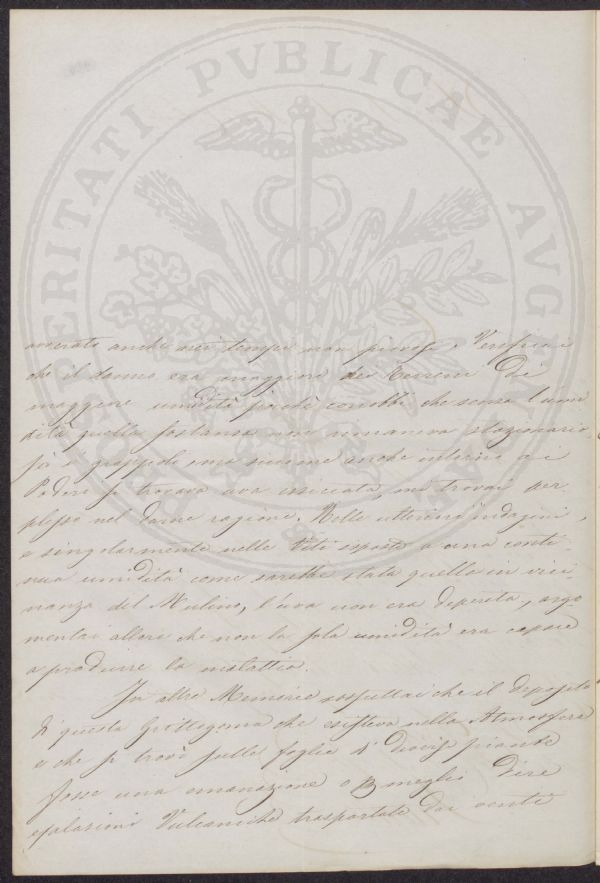 PROSPERITATI PVBLICAE AVGENDAE
anche nei tempi non piovosi. Verificai
che il danno era maggiore dei Terreni di
maggiore umidità perchè conobbi che senza l'umi
dità quella sostanza non rimaneva stazionaria
su i grappoli, ma siccome anche interno ai
Poderi si trovava uva essiccata, mi trovai per-
plesso nel darne ragione. Nelle ulteriori indagini,
e singolarmente nelle Viti esposte a una conti-
nua umidità come sarebbe stata quella in vici-
nanza del Mulino, l'uva non era deperita, argo-
mentai allora che non la sola umidità era capace
a produrre la malattia.
In altre Memorie sospettai che il deposito
di questa che esisteva nella Atmosfera
e che si trovò sulle foglie di diverse piante
fosse una emanazione o meglio dire
esalazioni Vulcaniche trasportate dai venti